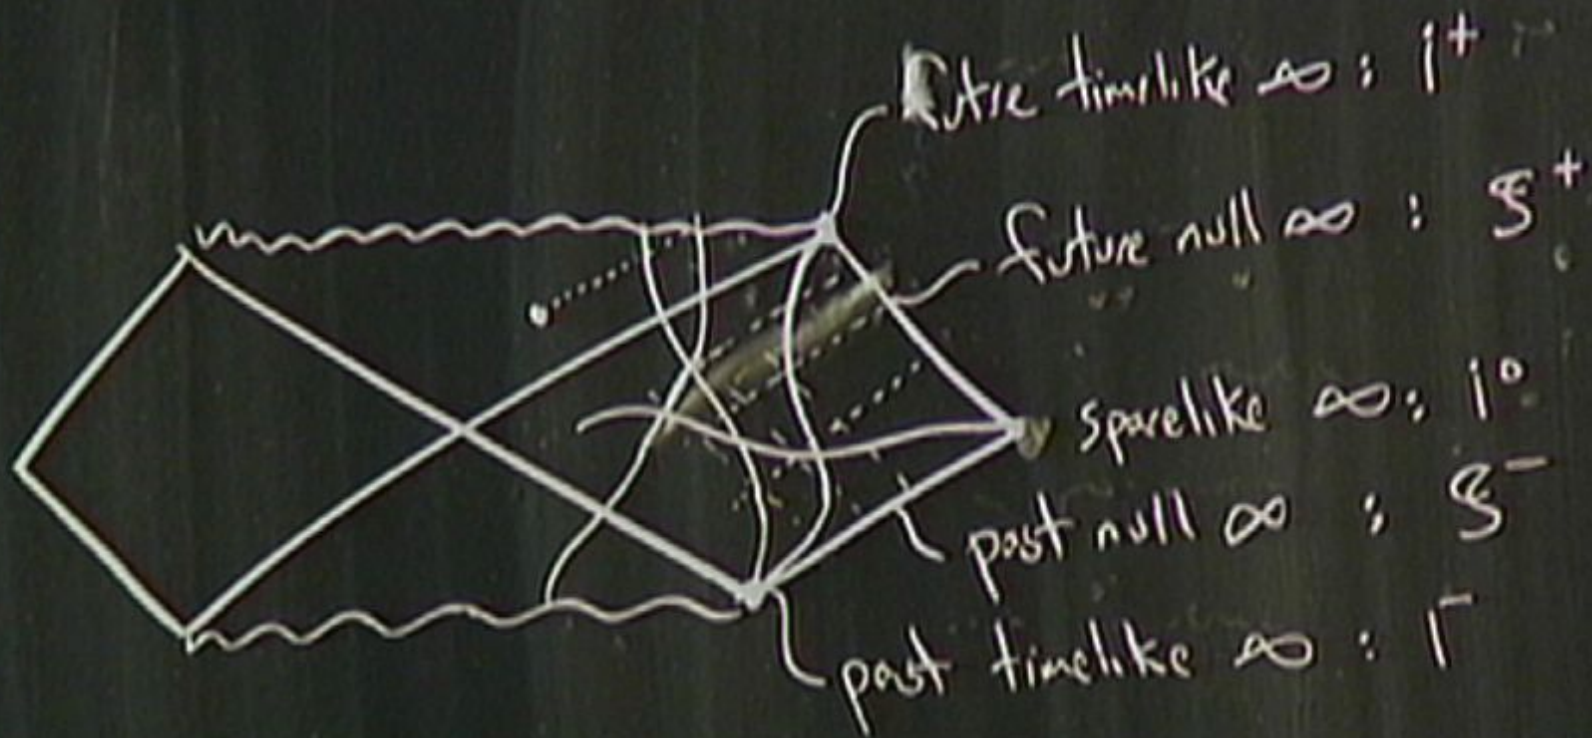 future timelike ∞ : i⁺
future null ∞ : ℐ⁺
spacelike ∞ : i⁰
past null ∞ : ℐ⁻
past timelike ∞ : i⁻